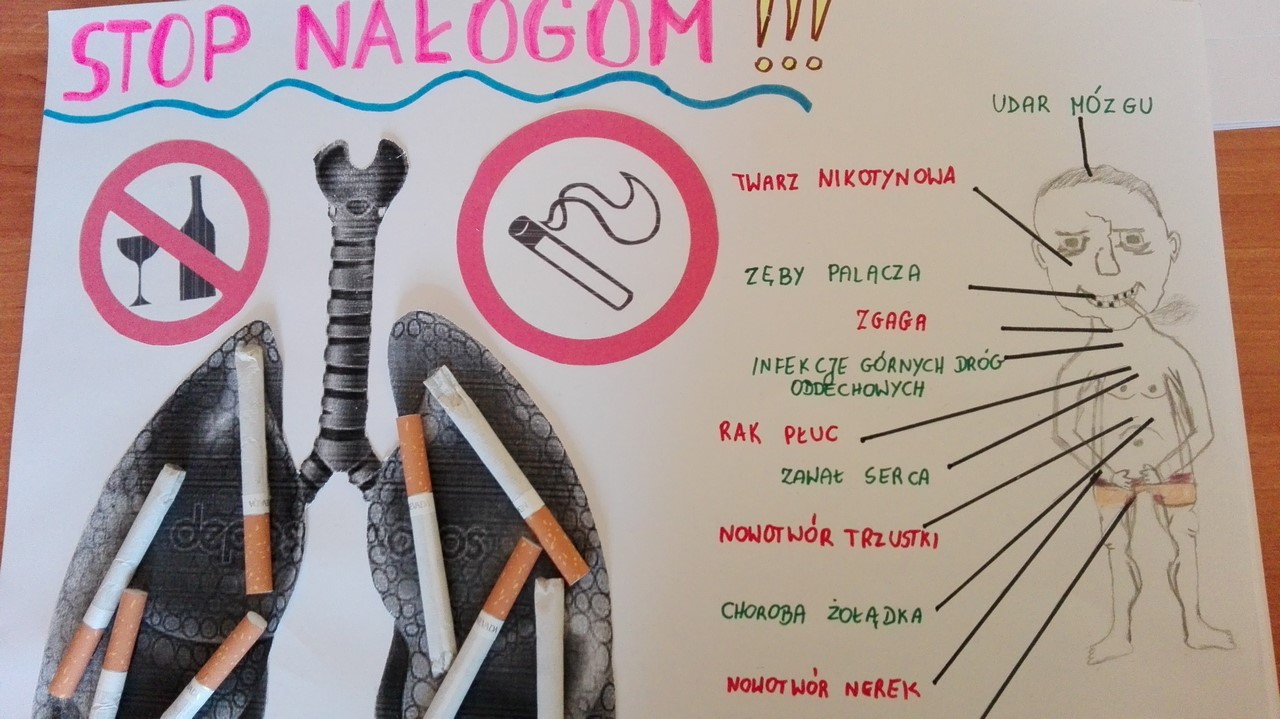 STOP NAŁOGOM !!!
UDAR MÓZGU
TWARZ NIKOTYNOWA
ZĘBY PALĄCZA
ZGAGA
INFEKCJE GÓRNYCH DRÓG
ODDECHOWYCH
RAK PŁUC
ZAWAŁ SERCA
NOWOTWÓR TRZUSTKI
CHOROBA ŻOŁĄDKA
NOWOTWÓR NEREK